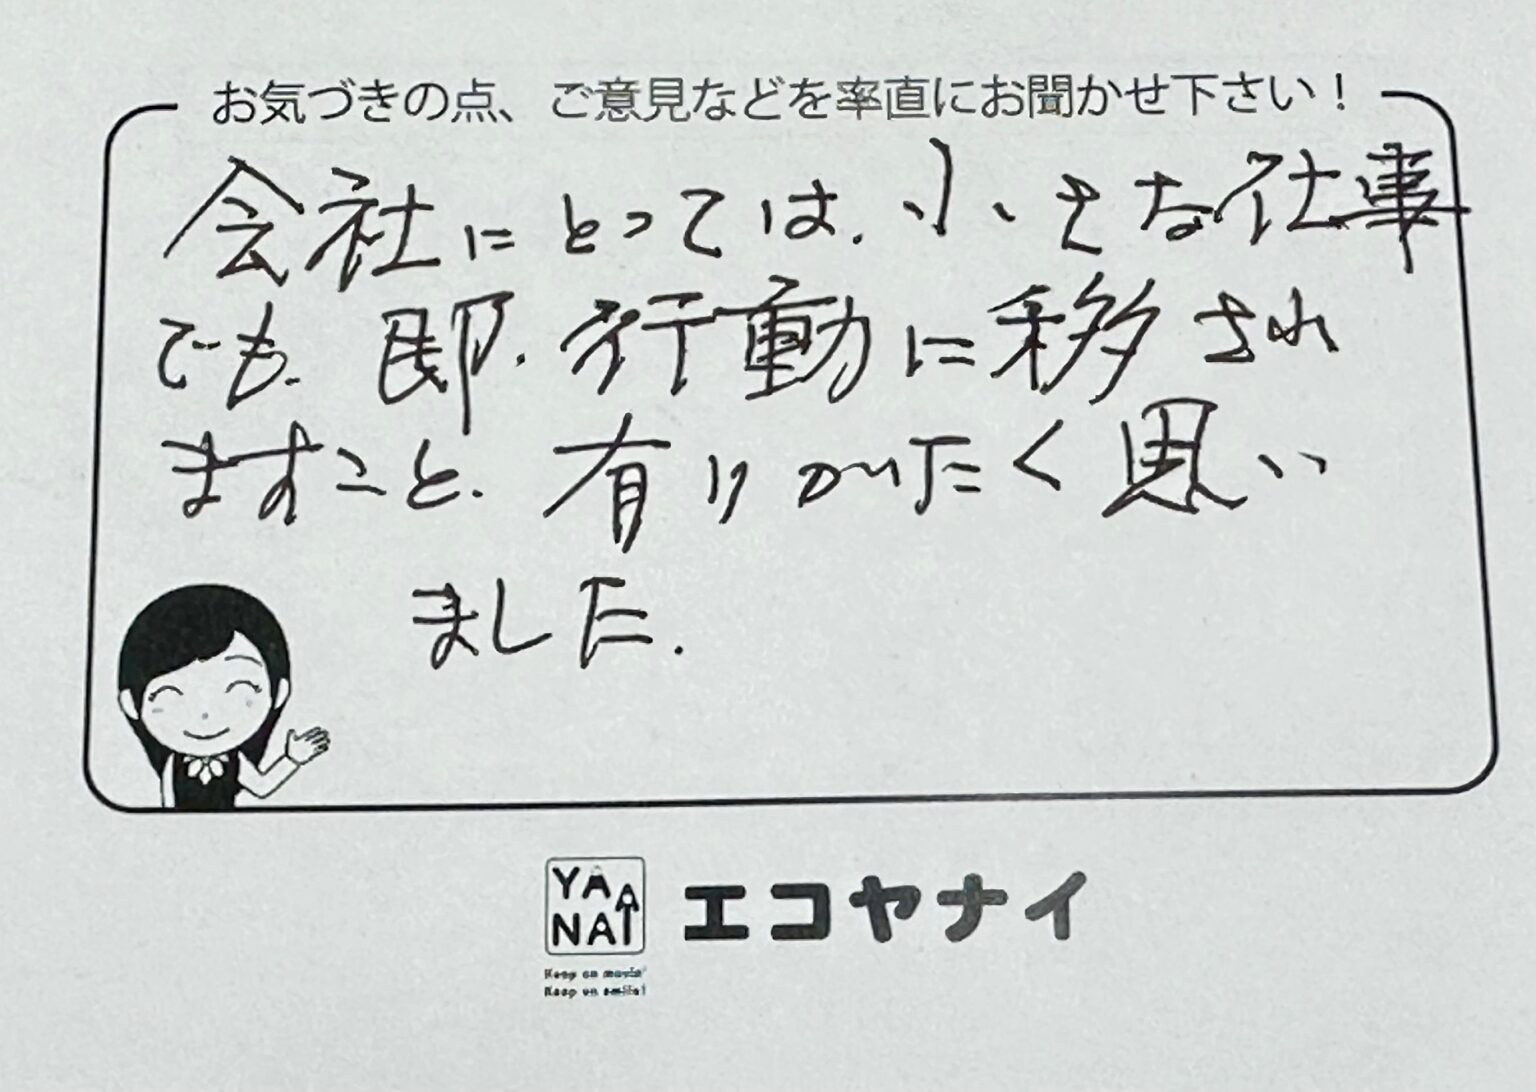 お気づきの点、ご意見などを率直にお聞かせ下さい！
会社にとっては、小さな仕事
でも、即、行動に移され
ますこと、有りがたく思い
ました.
YANAI
エコヤナイ
Keep on movin'
Keep on smile!